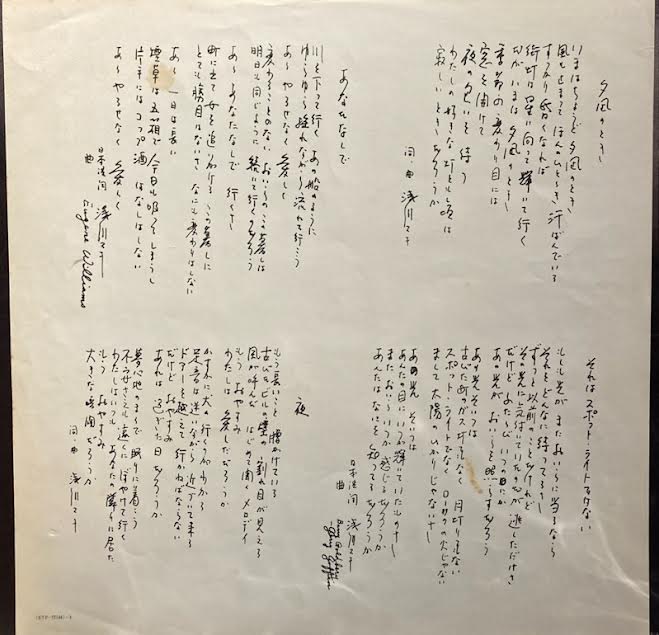 夕凪のとき
いまはちょうど 夕凪のとき
風も止まって ほんのひととき 汗ばんでいる
すっかり 昏くなれば
街灯は星に向って 輝いて行く
だが いまは 夕凪のとき
季節の変わり目には
窓を開けて
夜の匂いを 待つ
わたしの好きな 灯ともし頃は
寂しい ときだろうか
詞・曲 浅川マキ
あなたなしで
川を下って行く あの船のように
ゆらゆら 揺れながら 流れて行こう
あゝ やるせなく 愛しく
変わることのない おいらのこの暮しは
明日も同じように 続いて行くのだろう
あゝ あなたなしで 行くさ
町に出て 女を追いかける この暮しに
とても勝目はないさ なにも変わりはしない
あゝ 一日は長い
煙草は五箱で 今日も喫ってしまうし
片手にはコップ酒 はなしはしない
あゝ やるせなく 愛しく
日本語詞 浅川マキ
曲 Eugene Williams
それはスポットライトではない
もしも光が またおいらに当るなら
それをどんなに 待ってるさ
ずっと以前のことだけれど
その光に 気付いていたのだが 逃しただけさ
だけど ふたたび いつの日にか
あの光が おいらを照らすだろう
あの光 そいつは
古びた町の ガス灯でもなく 月灯りでもない
スポットライトでなく ローソクの火じゃない
まして 太陽のひかりじゃないさ
あの光 そいつは
あんたの目に いつか輝いていたものさ
また おいら いつか 感じるだろうか
あんたは なにを 知ってるだろうか
日本語詞 浅川マキ
曲
夜
もう長いこと 腰かけている
古びたビルの 壁の 割れ目が見える
風が呼んで はじめて聞く メロディ
もう おやすみ
わたしは 愛しただろうか
かすかに 犬の行くのがわかる
足音は 迷いながら 近づいて来る
ドアーを 越えて 行かねばならない
だけど おやすみ
あれは 過ぎた日 だろうか
夢心地のままで 眠りに着こう
不幸せさえも 遠くに ぼやけて行く
わたしはいつも あなたの 隣りに居た
もう おやすみ
大きな 時間 だろうか
詞・曲 浅川マキ